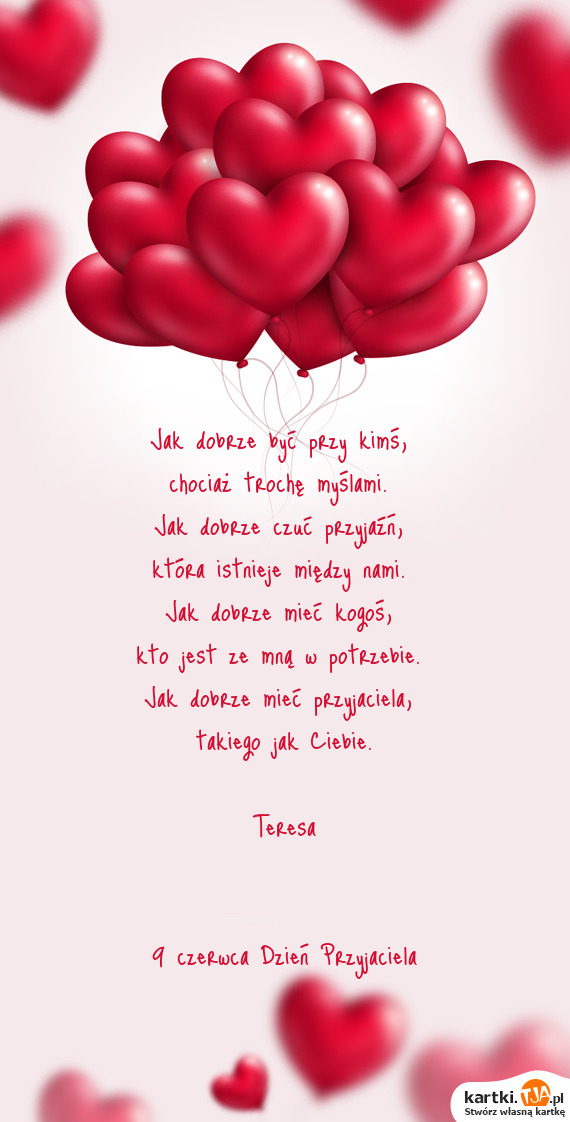 Jak dobrze być przy kimś,
chociaż trochę myślami.
Jak dobrze czuć przyjaźń,
która istnieje między nami.
Jak dobrze mieć kogoś,
kto jest ze mną w potrzebie.
Jak dobrze mieć przyjaciela,
takiego jak Ciebie.
Teresa
9 czerwca Dzień Przyjaciela
kartki.TJA.pl
Stwórz własną kartkę